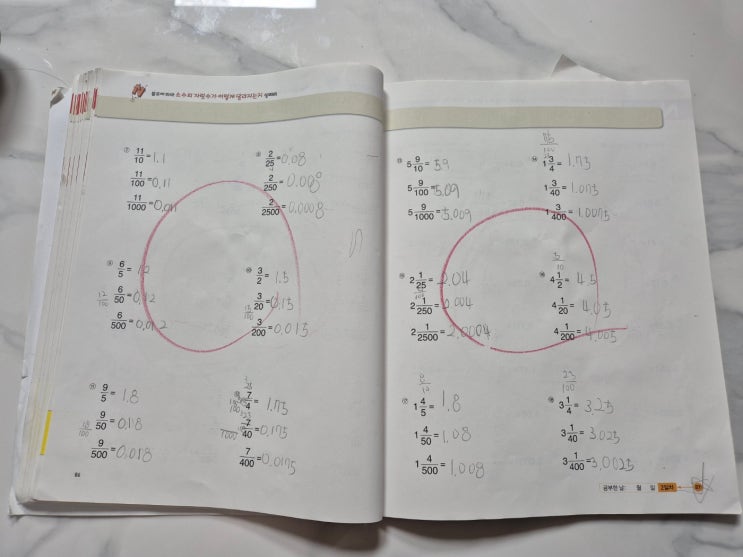 분모에 따라 소수의 자릿수가 어떻게 달라지는지 살펴봐!
⑦ 11/10 = 1.1
11/100 = 0.11
11/1000 = 0.011
⑧ 2/25 = 0.08
2/250 = 0.008
2/2500 = 0.0008
⑨ 6/5 = 1.2
12/100 6/50 = 0.12
6/500 = 0.012
⑩ 3/2 = 1.5
15/100 3/20 = 0.15
3/200 = 0.015
⑪ 9/5 = 1.8
18/100 9/50 = 0.18
9/500 = 0.018
⑫ 7/4 = 1.75
7/40 = 0.175
7/400 = 0.0175
86
⑬ 5 9/10 = 5.9
5 9/100 = 5.09
5 9/1000 = 5.009
⑭ 1 3/4 = 1.75
1 3/40 = 1.075
1 3/400 = 1.0075
⑮ 2 1/25 = 2.04
2 1/250 = 2.004
2 1/2500 = 2.0004
5/10
⑯ 4 1/2 = 4.5
4 1/20 = 4.05
4 1/200 = 4.005
8/10
⑰ 1 4/5 = 1.8
1 4/50 = 1.08
1 4/500 = 1.008
25/100
⑱ 3 1/4 = 3.25
3 1/40 = 3.025
3 1/400 = 3.0025
공부한 날: 월 일 2일차 87